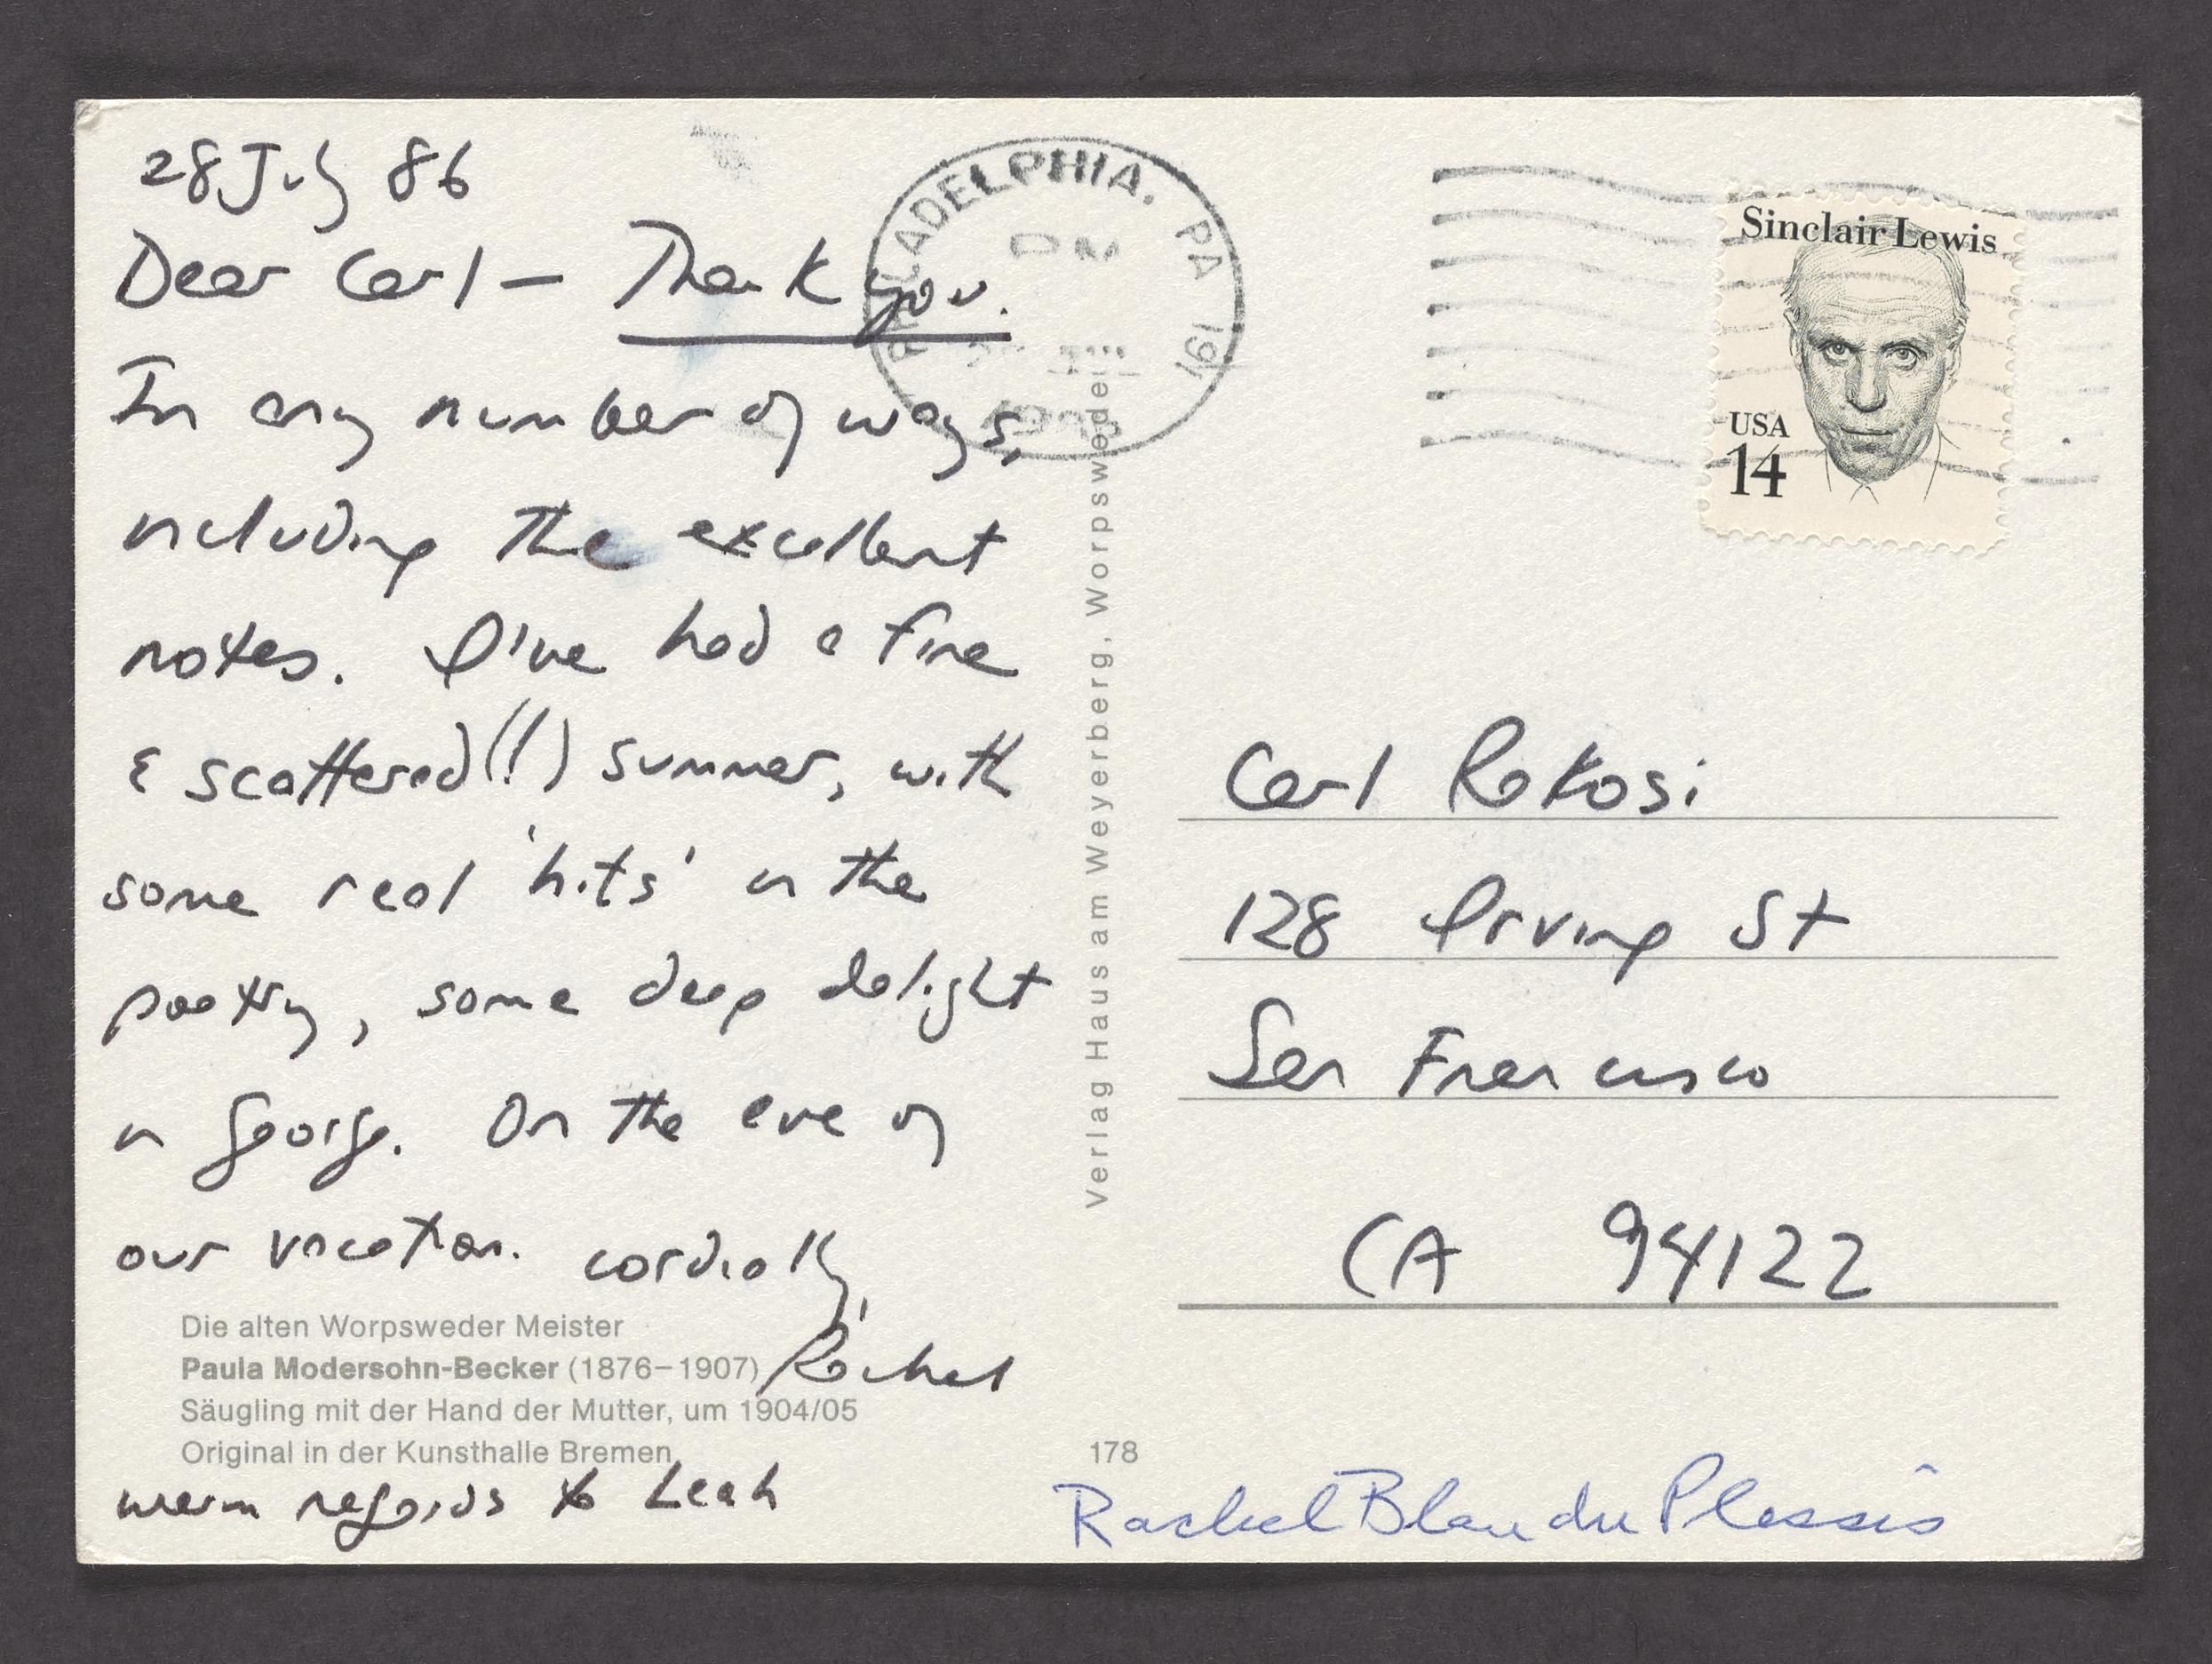 28 July 86
Dear Carl — Thank you.
In any number of ways,
including the excellent
notes. I've had a fine
& scattered (!) summer, with
some real 'hits' in the
poetry, some deep delight
in George. On the eve of
our vacation. cordially,
Rachel
Die alten Worpsweder Meister
Paula Modersohn-Becker (1876–1907)
Säugling mit der Hand der Mutter, um 1904/05
Original in der Kunsthalle Bremen
warm regards to Leah
Verlag Haus am Weyerberg, Worpswede
178
PHILADELPHIA, PA 191
PM
Sinclair Lewis
USA
14
Carl Rakosi
128 Irving St
San Francisco
CA 94122
Rachel Blau du Plessis